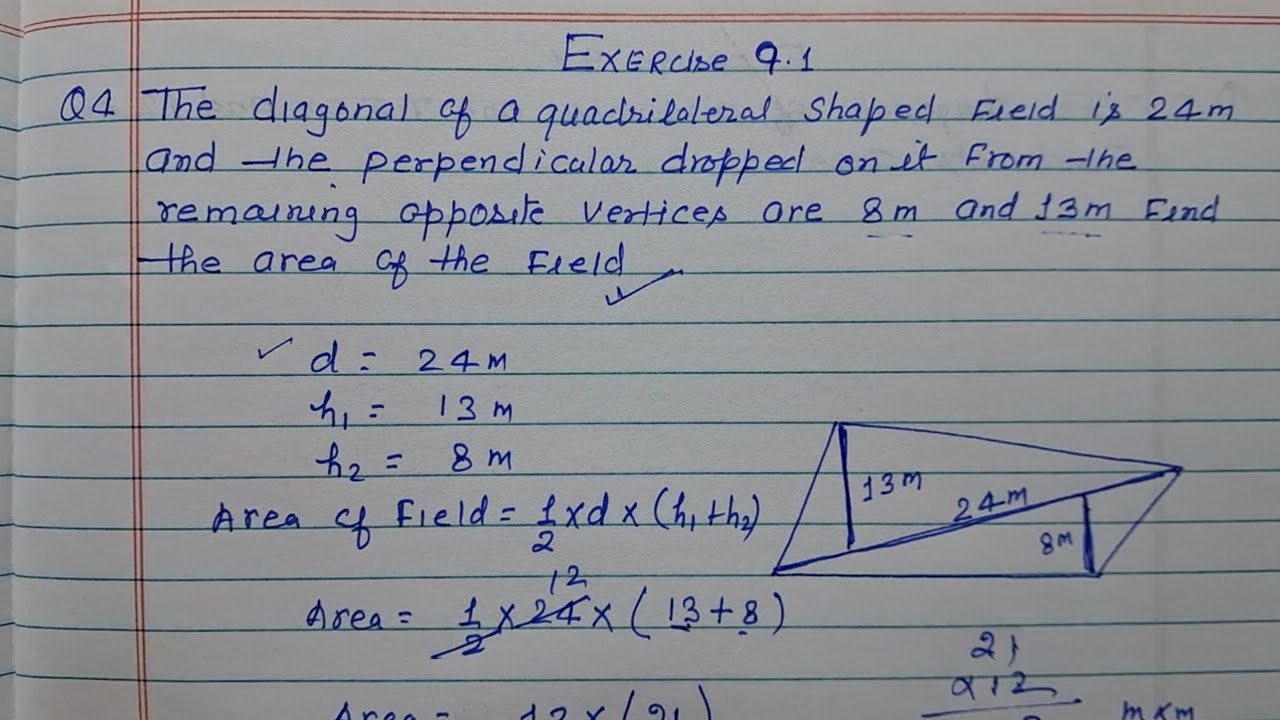 Exercise 9.1
Q4 The diagonal of a quadrilateral shaped Field is 24m
and the perpendicular dropped on it From the
remaining opposite vertices are 8m and 13m Find
the area of the Field
d = 24m
h₁ = 13 m
h₂ = 8 m
Area of Field = 1/2 × d × (h₁ + h₂)
13m
24m
8m
12
Area = 1/2 × 24 × (13 + 8)
21
×12
Area = 12 × (21)
m×m